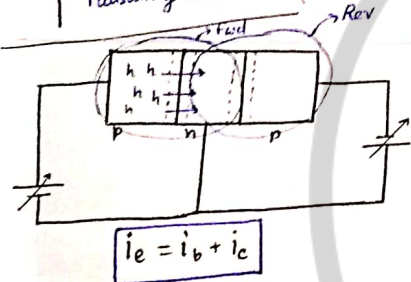 fwd
Rev
h h
h h
h
p n p
i_e = i_b + i_c